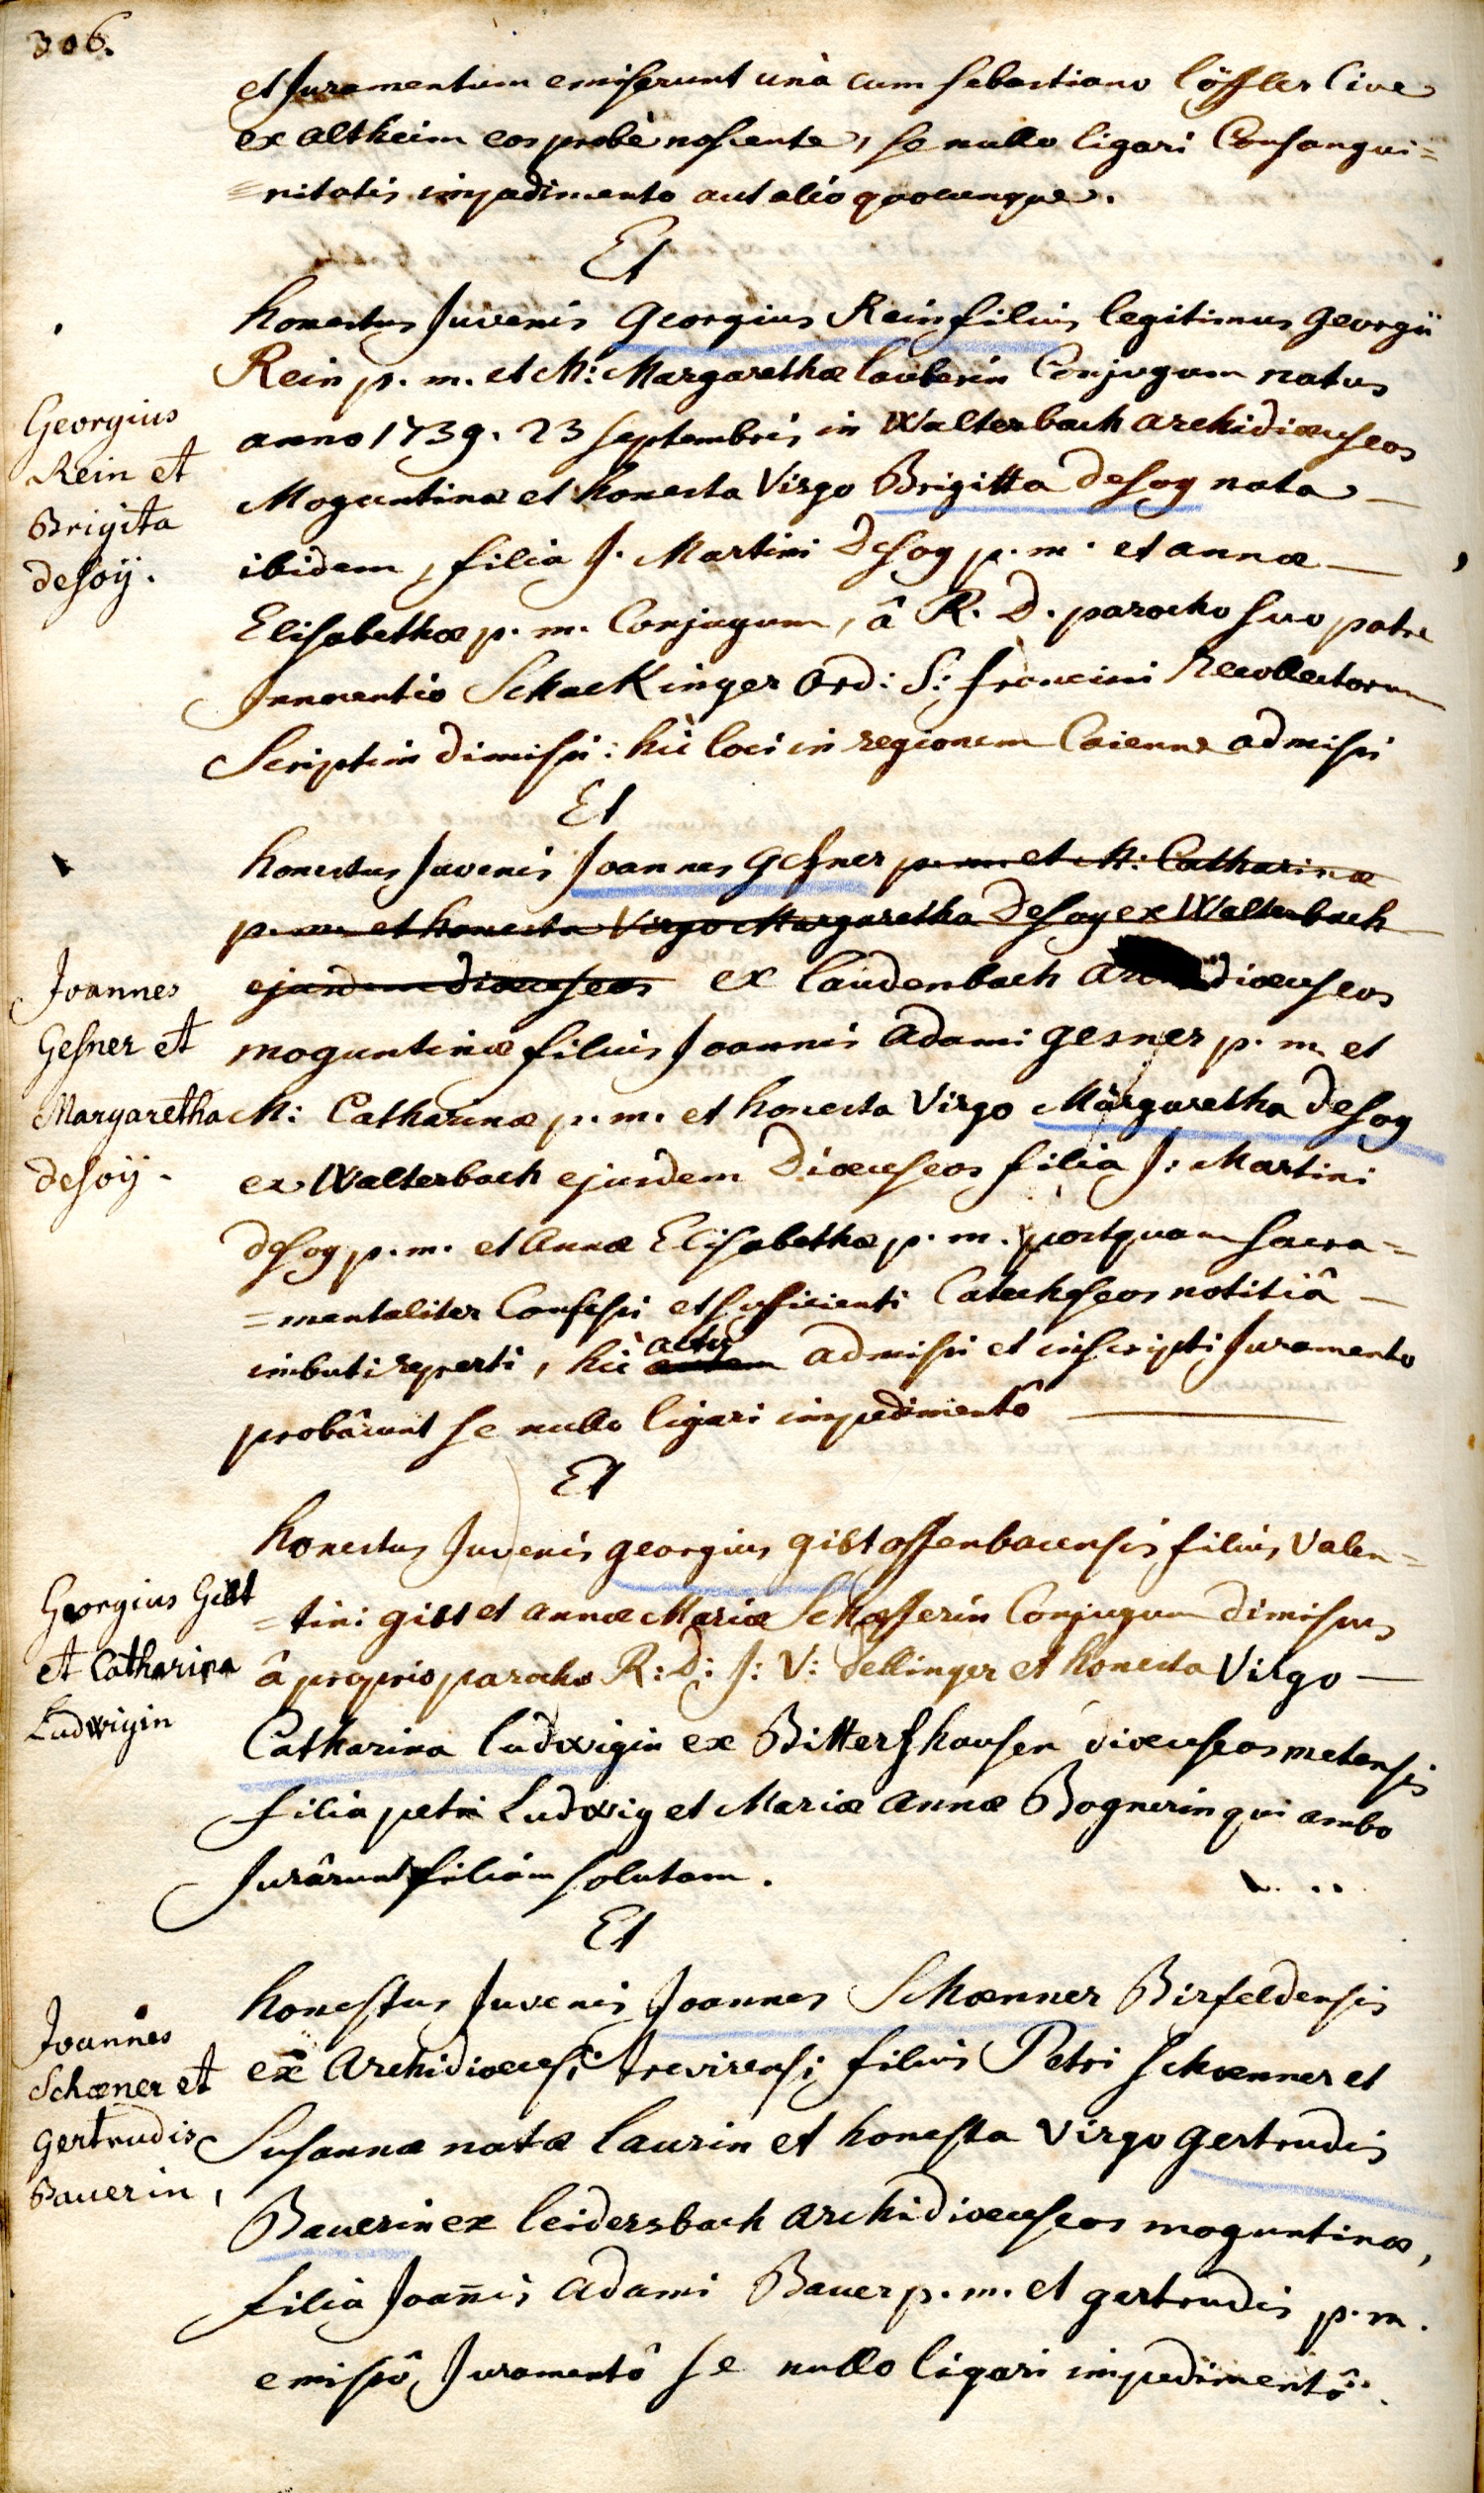 306.
et Juramentum emiserunt unà cum sebastiano Löffler Cive
ex altheim eos probè nosciente, se nullo ligari Consangui=
=nitatis impedimento aut alio quocunque.
Et
honestus Juvenis Georgius Rein filius legitimus Georgii
Rein p. m. et M: Margarethæ lauberin Conjugum natus
anno 1739. 23 septembris in Walterbach archidiœceseos
Moguntinæ et honesta Virgo Brigitta desoy nata
ibidem, filia J. Martini desoy p. m. et annæ
Elisabethæ p. m. Conjugum, â R. D. parocho suo patre
Innocentio Schackinger ord: S: francisci Recollectorum
Scriptim dimissi: hic loci in regionem Caienne admissi
Georgius
Rein et
Brigita
desoÿ.
Et
honestus Juvenis Joannes gesner p. m. et M: Catharinæ
p. m. et honesta Virgo Margaretha desoy ex Walterbach
ejusdem diœceseos ex laudenbach diœceseos
moguntinæ filius Joannis adami gesner p. m. et
M: Catharinæ p. m. et honesta Virgo Margaretha desoy
ex Walterbach ejusdem Diœceseos filia J: Martini
desoy p. m. et annæ Elisabethæ p. m. postquam sacra=
=mentaliter Confessi et suficienti Catecheseos notitiâ
imbuti reperti, hic actis admissi et inscripti Juramento
probârunt se nullo ligari impedimentô
Joannes
Gesner et
Margaretha
desoÿ.
Et
honestus Juvenis georgius gist offenbacensis filius Valen=
=tini gist et annæ Mariæ Schæfferin Conjugum dimissus
â proprio parocho R: D: J: V: dellinger et honesta Virgo
Catharina ludwigin ex Bittershausen diœceseos metensis
filia petri Ludwig et Mariæ annæ Bognerin qui ambo
Jurârunt filiam solutam.
Georgius Gist
et Catharina
Ludwigin
Et
honestus Juvenis Joannes Schœnner Birfeldensis
ex archidiœcesi trevirensi filius Petri schœnner et
Susannæ natæ laurin et honesta Virgo gertrudis
Bauerin ex leidersbach archidiœceseos moguntinæ,
filia Joañis adami Bauer p. m. et gertrudis p. m.
emissô Juramentô se nullo ligari impedimentô.
Joannes
Schœner et
gertrudis
Bauerin,